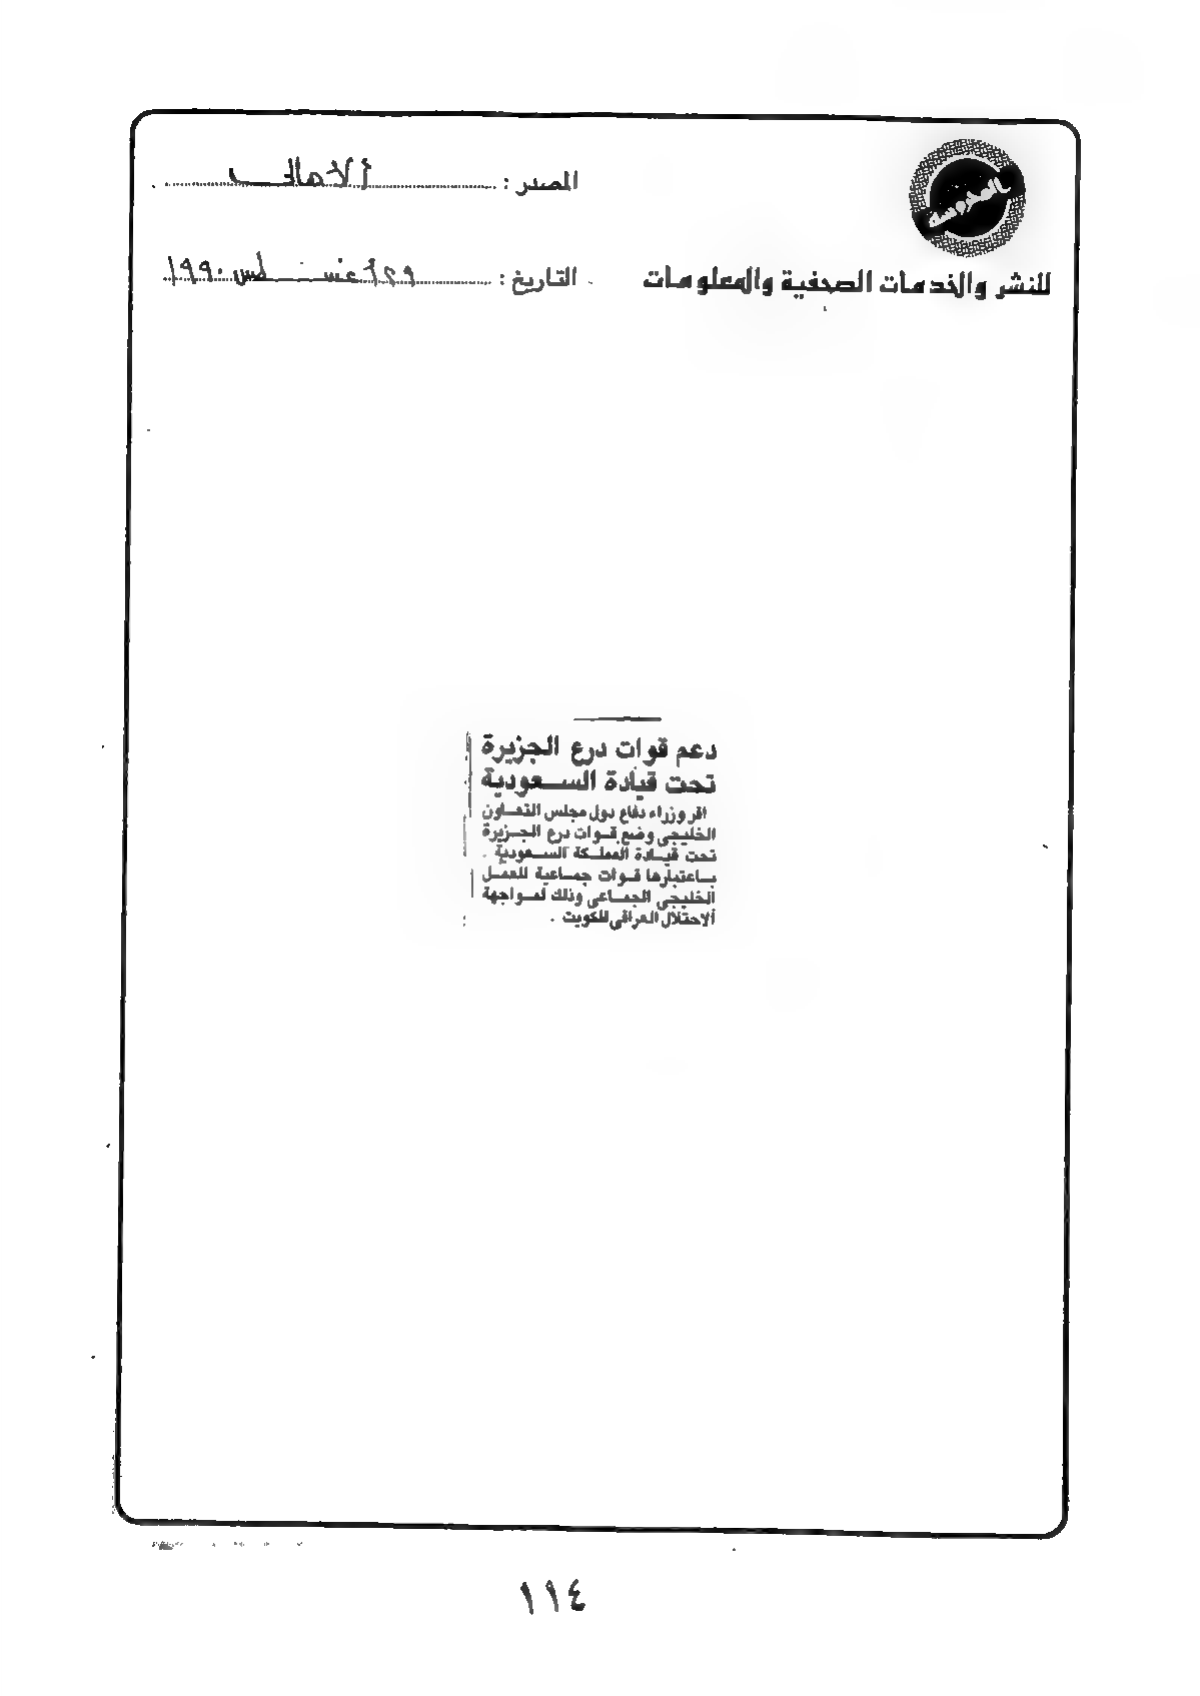 المحروسة
للنشر والخدمات الصحفية والمعلومات
المصدر : الأهالى
التاريخ : ٢٩ أغسطس ١٩٩٠
دعم قوات درع الجزيرة
تحت قيادة السعودية
اقر وزراء دفاع دول مجلس التعاون
الخليجى وضع قوات درع الجزيرة
تحت قيادة المملكة السعودية
باعتبارها قوات جماعية للعمل
الخليجى الجماعى وذلك لمواجهة
الاحتلال العراقى للكويت .
١١٤